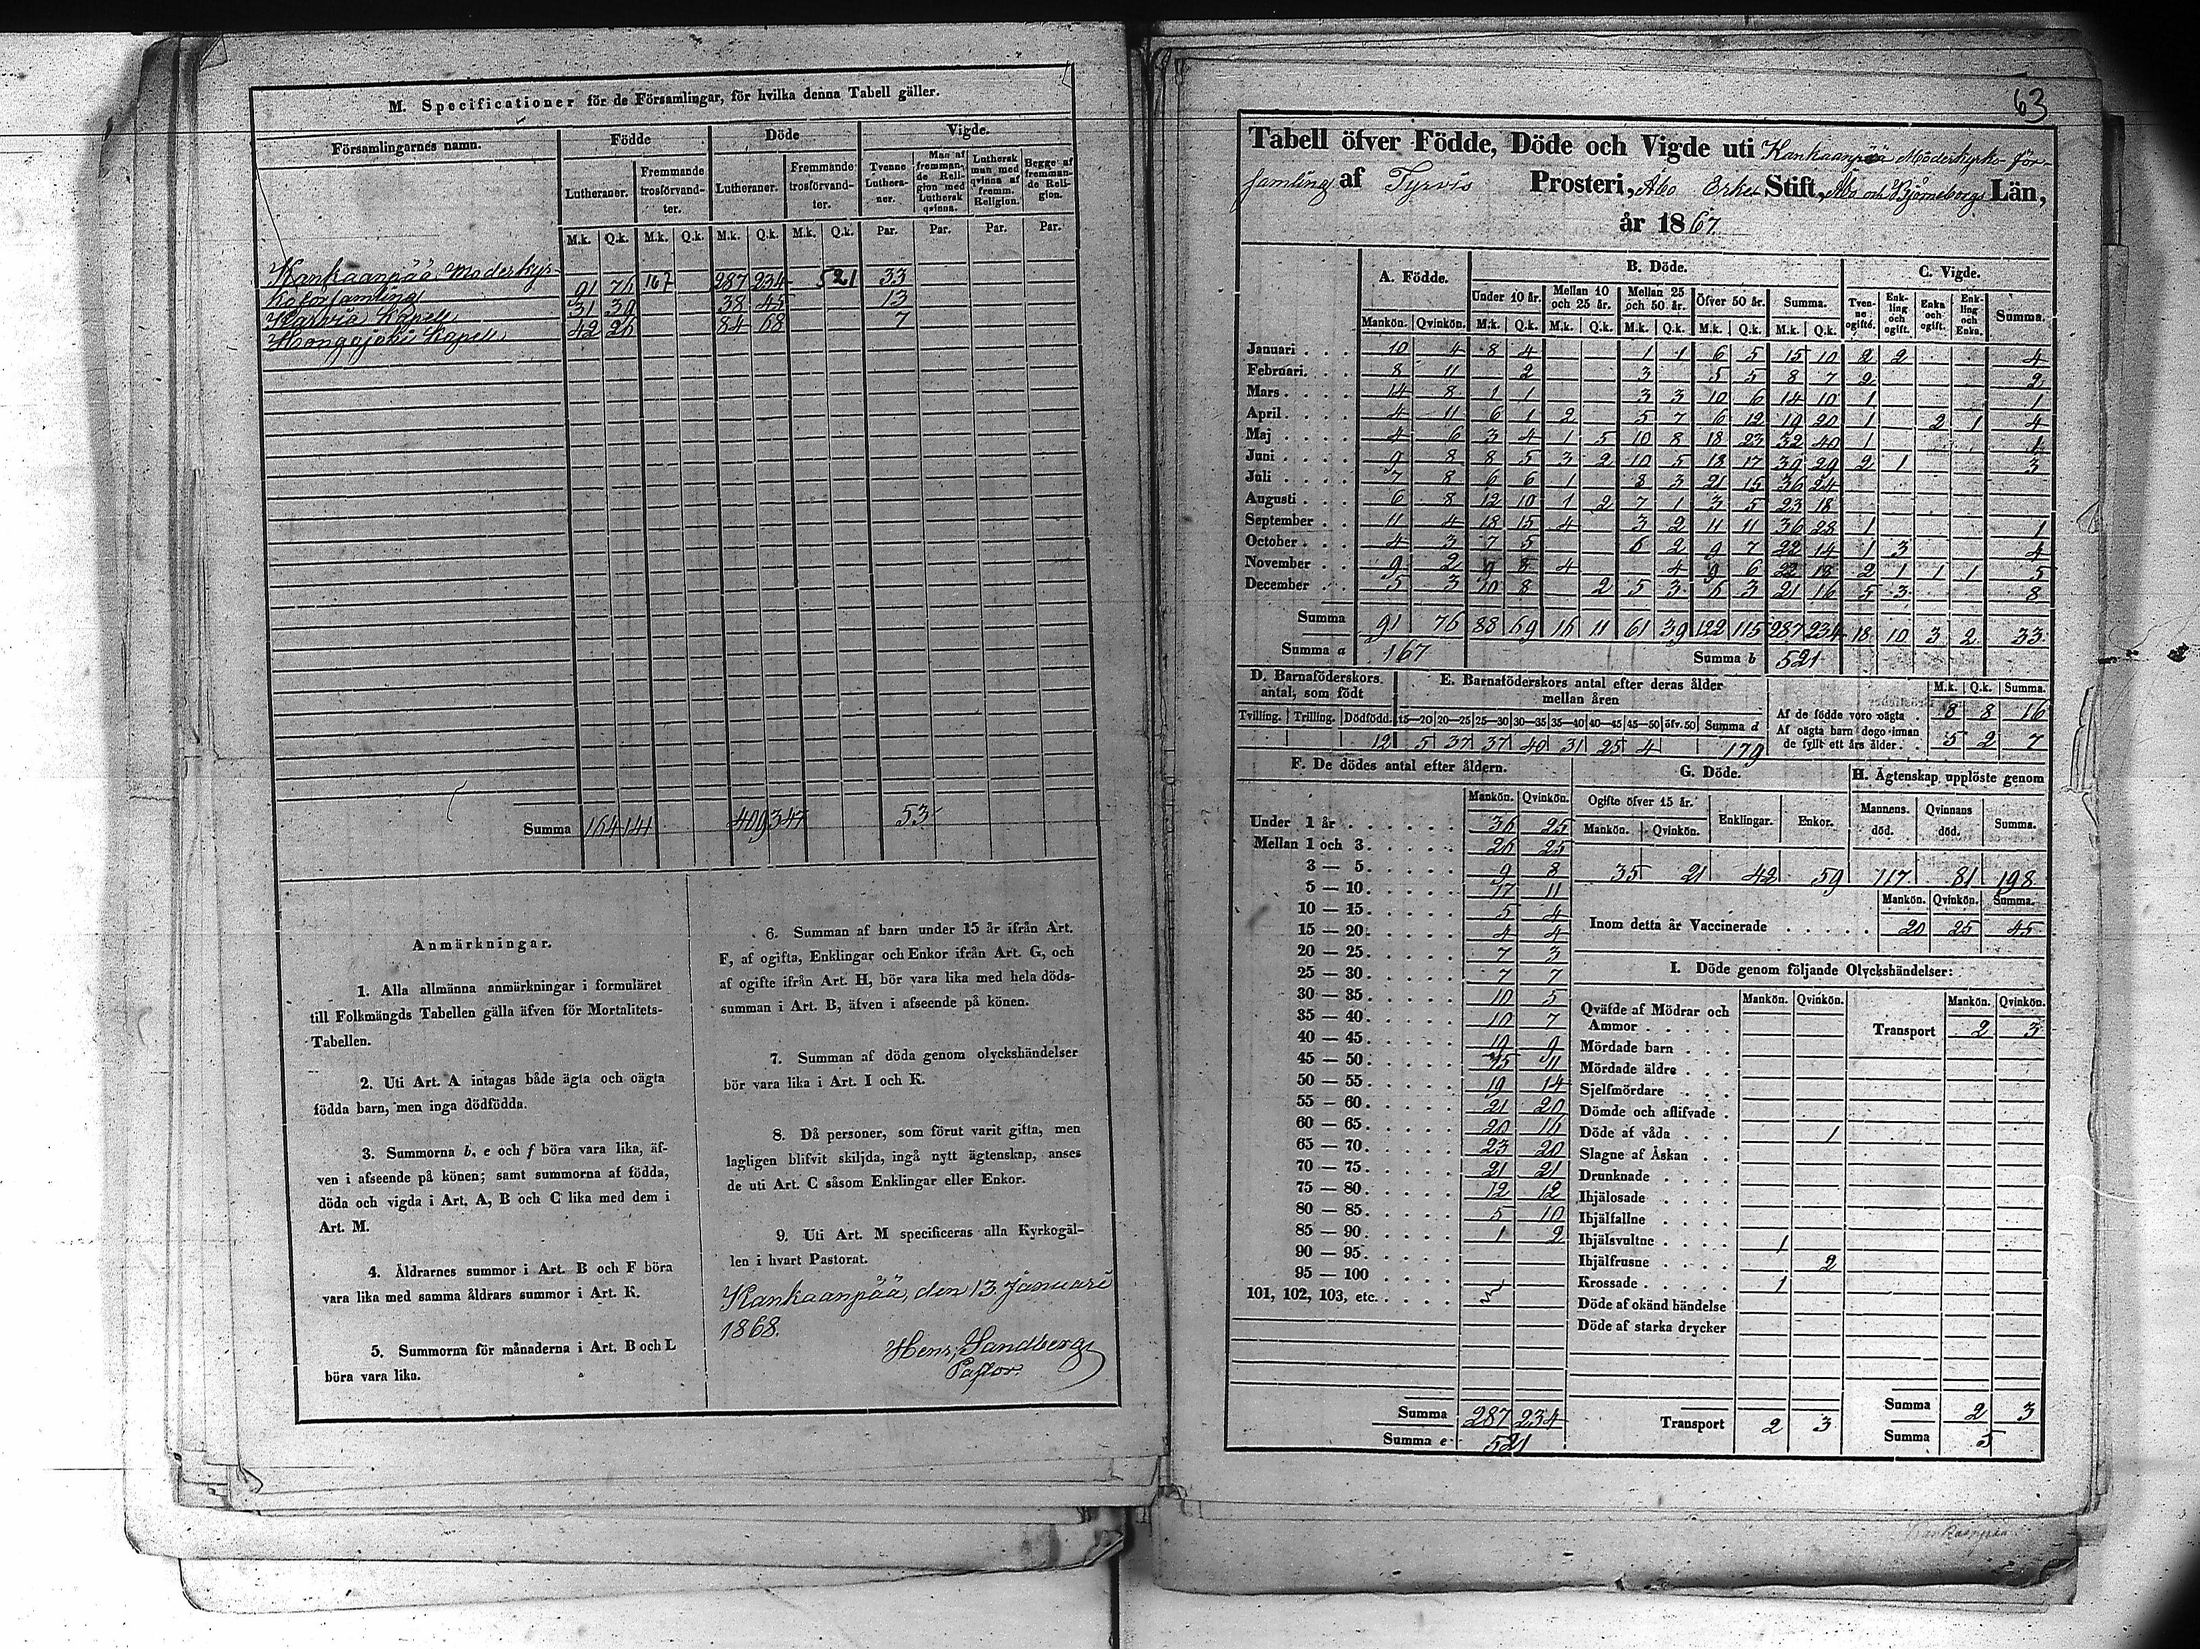 M. Specificationer för de Församlingar, för hvilka denna Tabell gäller.
Församlingarnes namn. Födde Döde Vigde.
Lutheraner. Fremmande trosförvandter. Lutheraner. Fremmande trosförvandter. Tvenne Lutheraner. Man af fremmande Religion med Luthersk qvinna. Luthersk man med qvinna af fremm. Religion. Begge af fremmande Religion.
M.k. Q.k. M.k. Q.k. M.k. Q.k. M.k. Q.k. Par. Par. Par. Par.
Kankaanpää Moderkyr-
koförsamling 91 76 167 287 234 521 33
Karvia Kapell 31 39 38 45 13
Hongojoki Kapell 42 26 84 68 7
Summa 164 141 409 347 53
Anmärkningar.
1. Alla allmänna anmärkningar i formuläret
till Folkmängds Tabellen gälla äfven för Mortalitets-
Tabellen.
2. Uti Art. A intagas både ägta och oägta
födda barn, men inga dödfödda.
3. Summorna b, e och f böra vara lika, äf-
ven i afseende på könen; samt summorna af födda,
döda och vigda i Art. A, B och C lika med dem i
Art. M.
4. Äldrarnes summor i Art. B och F böra
vara lika med samma åldrars summor i Art. K.
5. Summorna för månaderna i Art. B och L
böra vara lika.
6. Summan af barn under 15 år ifrån Art.
F, af ogifta, Enklingar och Enkor ifrån Art. G, och
af ogifte ifrån Art. H, bör vara lika med hela döds-
summan i Art. B, äfven i afseende på könen.
7. Summan af döda genom olyckshändelser
bör vara lika i Art. I och K.
8. Då personer, som förut varit gifta, men
lagligen blifvit skiljda, ingå nytt ägtenskap, anses
de uti Art. C såsom Enklingar eller Enkor.
9. Uti Art. M specificeras alla Kyrkogäl-
len i hvart Pastorat.
Kankaanpää, den 13. Januari
1868.
Henr. Sandberg
Pastor.
63
Tabell öfver Födde, Döde och Vigde uti Kankaanpää Moderkyrko-för-
samling af Tyrvis Prosteri, Åbo Erke Stift, Åbo och Björneborgs Län,
år 1867
A. Födde. B. Döde. C. Vigde.
Under 10 år. Mellan 10 och 25 år. Mellan 25 och 50 år. Öfver 50 år. Summa. Tvenne ogifte. Enkling och ogift. Enka och ogift. Enkling och Enka. Summa.
Mankön. Qvinkön. M.k. Q.k. M.k. Q.k. M.k. Q.k. M.k. Q.k. M.k. Q.k.
Januari 10 4 8 4 1 1 6 5 15 10 2 2 4
Februari 8 11 2 3 5 5 8 7 2 2
Mars 14 8 1 1 3 3 10 6 14 10 1 1
April 4 11 6 1 2 5 7 6 12 19 20 1 2 1 4
Maj 4 6 3 4 1 5 10 8 18 23 32 40 1 1
Juni 9 8 8 5 3 2 10 5 18 17 39 29 2 1 3
Juli 7 8 6 6 1 8 3 21 15 36 24
Augusti 6 8 12 10 1 2 7 1 3 5 23 18
September 11 4 18 15 4 3 2 11 11 36 28 1 1
October 4 3 7 5 6 2 9 7 22 14 1 3 4
November 9 2 9 8 4 4 9 6 22 18 2 1 1 1 5
December 5 3 10 8 2 5 3 6 3 21 16 5 3 8
Summa 91 76 88 69 16 11 61 39 122 115 287 234 18 10 3 2 33
Summa a 167 Summa b 521
D. Barnaföderskors antal, som födt
Tvilling. Trilling. Dödfödd.
12
E. Barnaföderskors antal efter deras ålder mellan åren
15—20 20—25 25—30 30—35 35—40 40—45 45—50 öfv. 50 Summa d
5 37 37 40 31 25 4 179
M.k. Q.k. Summa.
Af de födde voro oägta 8 8 16
Af oägta barn dogo innan
de fyllt ett års ålder 5 2 7
F. De dödes antal efter åldern.
Mankön. Qvinkön.
Under 1 år 36 25
Mellan 1 och 3 26 25
3 — 5 9 8
5 — 10 17 11
10 — 15 5 4
15 — 20 4 4
20 — 25 7 3
25 — 30 7 7
30 — 35 10 5
35 — 40 10 7
40 — 45 19 9
45 — 50 15 11
50 — 55 19 14
55 — 60 21 20
60 — 65 20 16
65 — 70 23 20
70 — 75 21 21
75 — 80 12 12
80 — 85 5 10
85 — 90 1 2
90 — 95
95 — 100
101, 102, 103, etc.
Summa 287 234
Summa e 521
G. Döde.
Ogifte öfver 15 år. Enklingar. Enkor.
Mankön. Qvinkön.
35 21 42 59
H. Ägtenskap upplöste genom
Mannens död. Qvinnans död. Summa.
117 81 198
Mankön. Qvinkön. Summa.
Inom detta år Vaccinerade 20 25 45
I. Döde genom följande Olyckshändelser:
Mankön. Qvinkön. Mankön. Qvinkön.
Qväfde af Mödrar och
Ammor Transport 2 3
Mördade barn
Mördade äldre
Sjelfmördare
Dömde och aflifvade
Döde af våda 1
Slagne af Åskan
Drunknade
Ihjälosade
Ihjälfallne
Ihjälsvultne 1
Ihjälfrusne 2
Krossade 1
Döde af okänd händelse
Döde af starka drycker
Transport 2 3
Summa 2 3
Summa 5